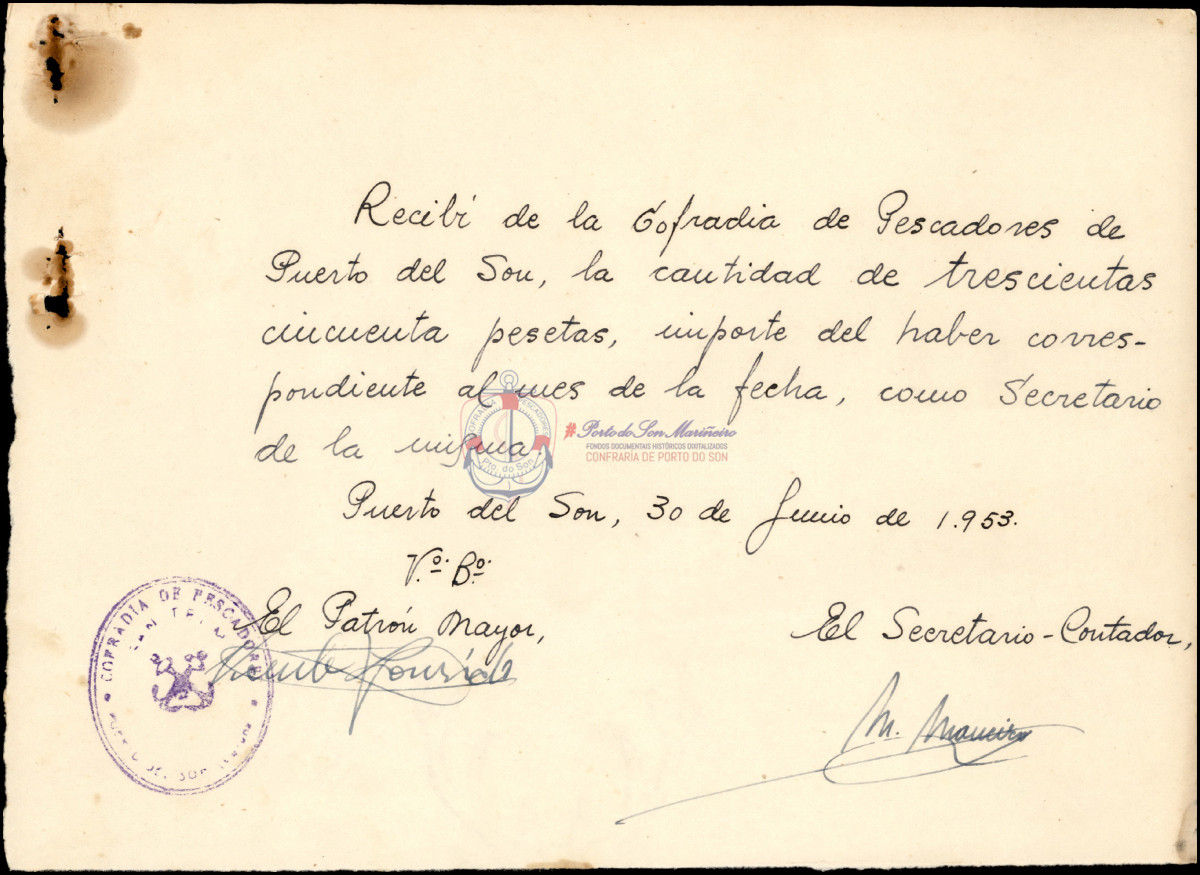 Recibí de la Cofradia de Pescadores de
Puerto del Son, la cantidad de trescientas
cincuenta pesetas, importe del haber corres-
pondiente al mes de la fecha, como Secretario
de la misma.
COFRADIA PESCADORES
Pto. do Son
#PortodoSonMariñeiro
FONDOS DOCUMENTAIS HISTÓRICOS DIXITALIZADOS
CONFRARÍA DE PORTO DO SON
Puerto del Son, 30 de Junio de 1.953.
V.º B.º
El Patrón Mayor,
El Secretario-Contador,
COFRADIA DE PESCADORES
M. Maneiro